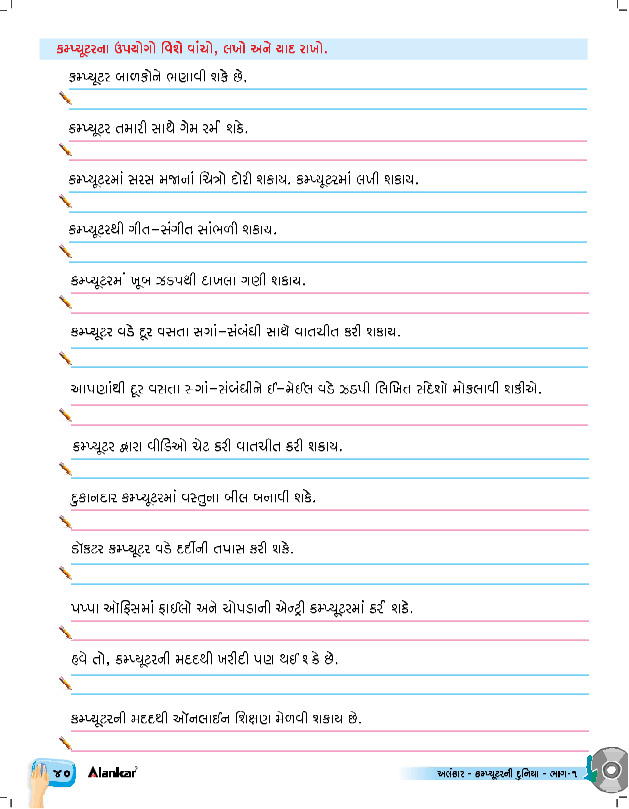 કમ્પ્યૂટરના ઉપયોગો વિશે વાંચો, લખો અને યાદ રાખો.
કમ્પ્યૂટર બાળકોને ભણાવી શકે છે.
કમ્પ્યૂટર તમારી સાથે ગેમ રમી શકે.
કમ્પ્યૂટરમાં સરસ મજાનાં ચિત્રો દોરી શકાય. કમ્પ્યૂટરમાં લખી શકાય.
કમ્પ્યૂટરથી ગીત-સંગીત સાંભળી શકાય.
કમ્પ્યૂટરમાં ખૂબ ઝડપથી દાખલા ગણી શકાય.
કમ્પ્યૂટર વડે દૂર વસતા સગાં-સંબંધી સાથે વાતચીત કરી શકાય.
આપણાંથી દૂર વસતા સગાં-સંબંધીને ઈ-મેઈલ વડે ઝડપી લિખિત સંદેશો મોકલાવી શકીએ.
કમ્પ્યૂટર દ્વારા વીડિઓ ચેટ કરી વાતચીત કરી શકાય.
દુકાનદાર કમ્પ્યૂટરમાં વસ્તુના બીલ બનાવી શકે.
ડૉકટર કમ્પ્યૂટર વડે દર્દીની તપાસ કરી શકે.
પપ્પા ઑફિસમાં ફાઈલો અને ચોપડાની એન્ટ્રી કમ્પ્યૂટરમાં કરી શકે.
હવે તો, કમ્પ્યૂટરની મદદથી ખરીદી પણ થઈ શકે છે.
કમ્પ્યૂટરની મદદથી ઑનલાઈન શિક્ષણ મેળવી શકાય છે.
૪૦ Alankar
અલંકાર - કમ્પ્યૂટરની દુનિયા - ભાગ-૧